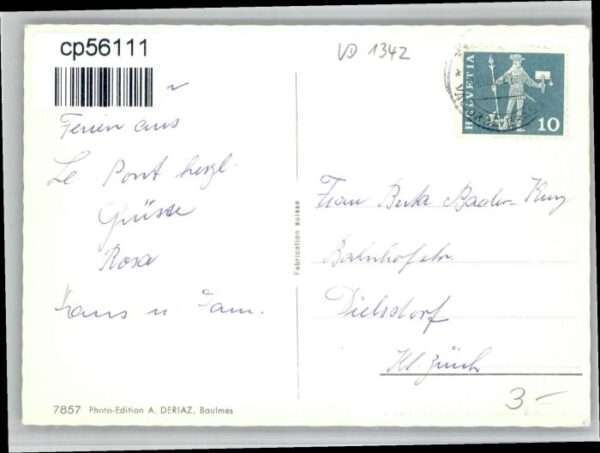 cp56111
VD 1342
HELVETIA
10
Ferien aus
Le Pont herzl.
Grüsse
Rosa
Hans u Fam.
Fabrication suisse
Frau Berta Bader- Kunz
Bahnhofstr.
Dielsdorf
Kt Zürich
3.-
7857 Photo-Edition A. DERIAZ, Baulmes